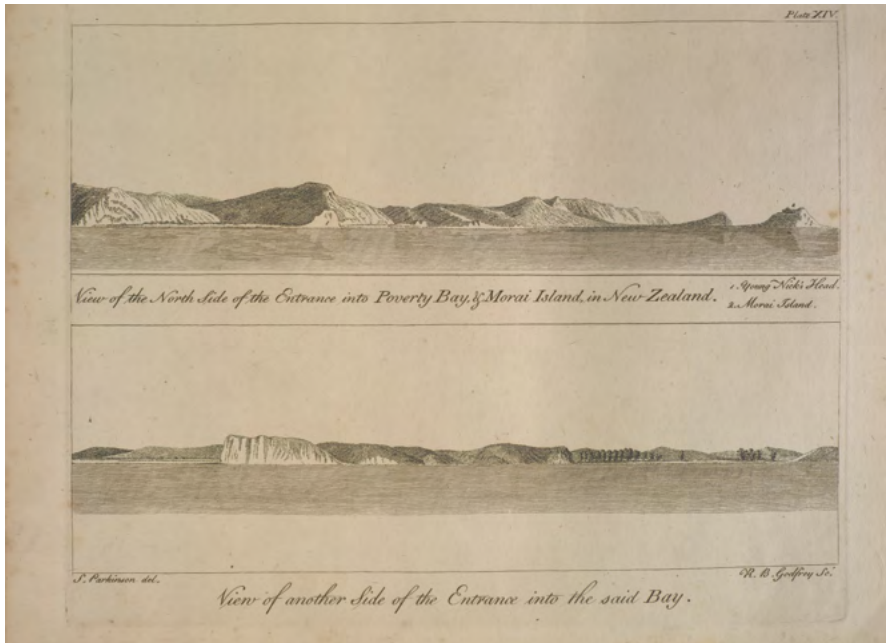 Plate XIV.
View of the North Side of the Entrance into Poverty Bay, & Morai Island, in New Zealand.
1. Young Nick's Head.
2. Morai Island.
S. Parkinson del.
R. B. Godfrey Sc.
View of another Side of the Entrance into the said Bay.